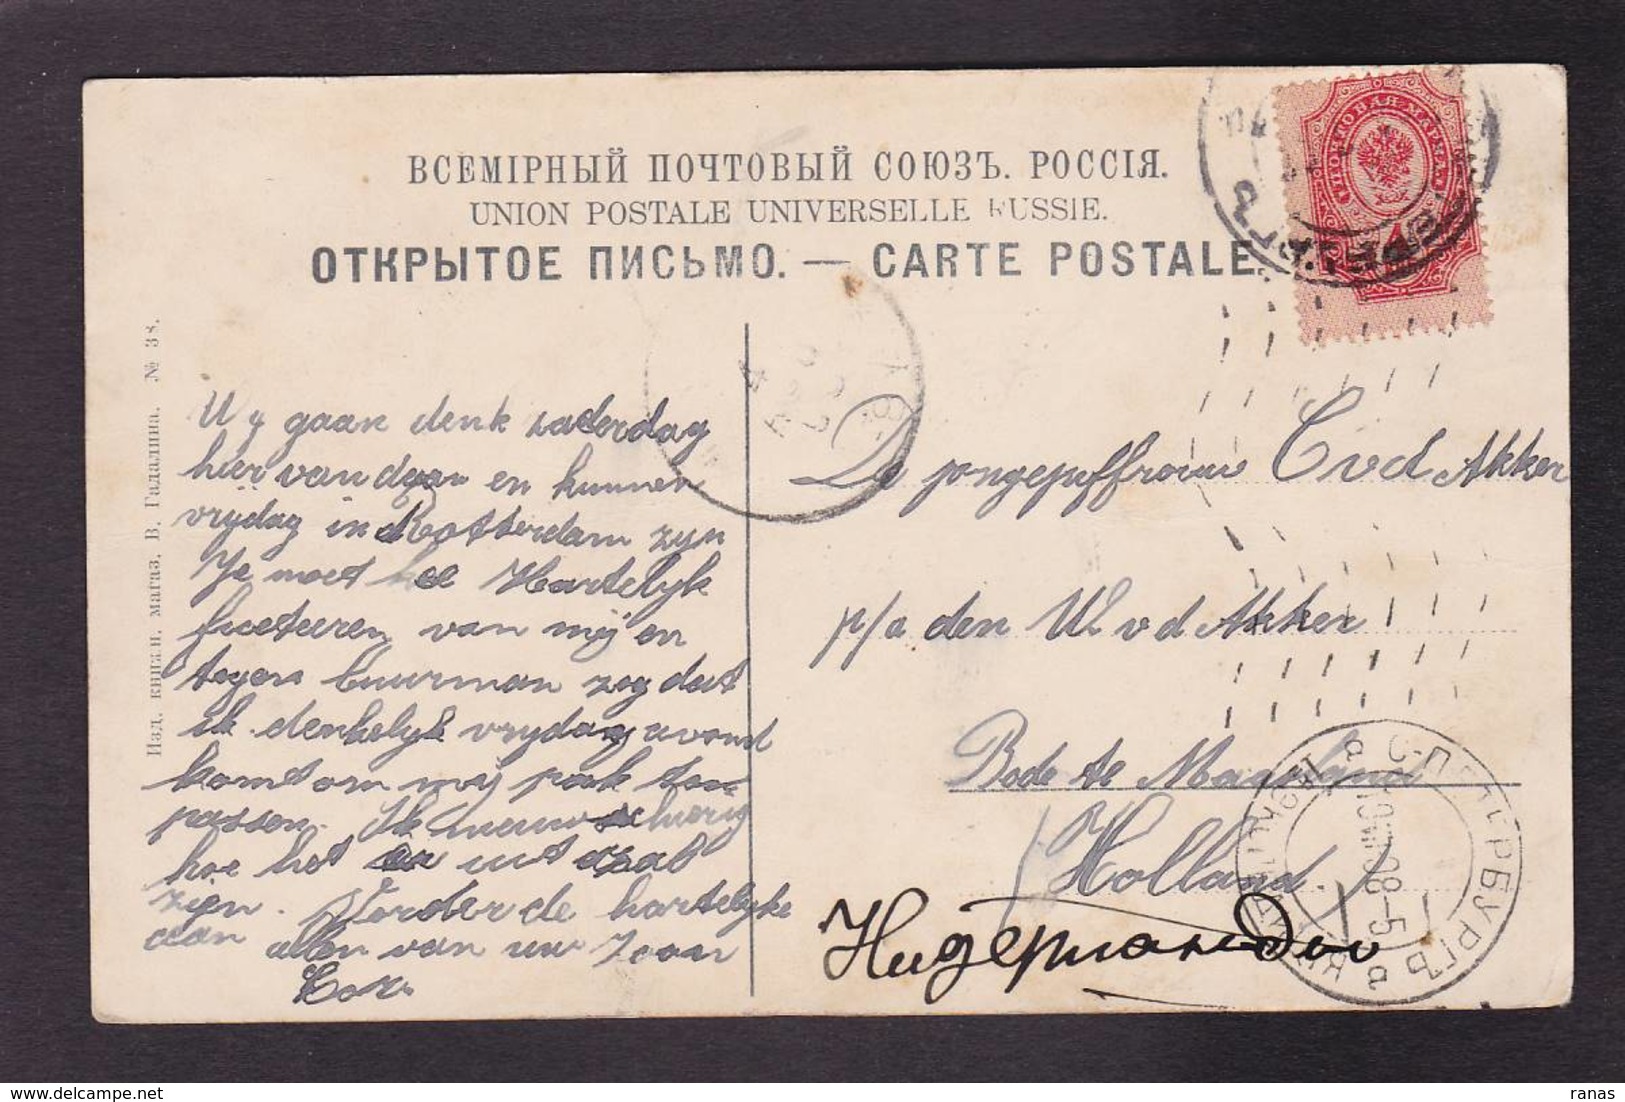 ВСЕМІРНЫЙ ПОЧТОВЫЙ СОЮЗЪ. РОССІЯ.
UNION POSTALE UNIVERSELLE RUSSIE.
ОТКРЫТОЕ ПИСЬМО. — CARTE POSTALE.
Изд. книжн. магаз. В. Гадалина. № 38.
Wy gaan denk zaterdag
hier vandaan en kunnen
vrijdag in Rotterdam zyn
Je moet Hartelyk
van mij en
tegen buurman zeg dat
ik denkelyk vrydag avond
komt om mij pak
passen. Ik
hoe het er uit zal
zien. Verder de hartelyke
aan allen van uw Zoon
Cor.
De jongejuffrouw C v d Akker
p/a den W v d Akker
Bode te Maasland
Holland.
Нидерланды
С-ПЕТЕРБУРГЪ
ranas